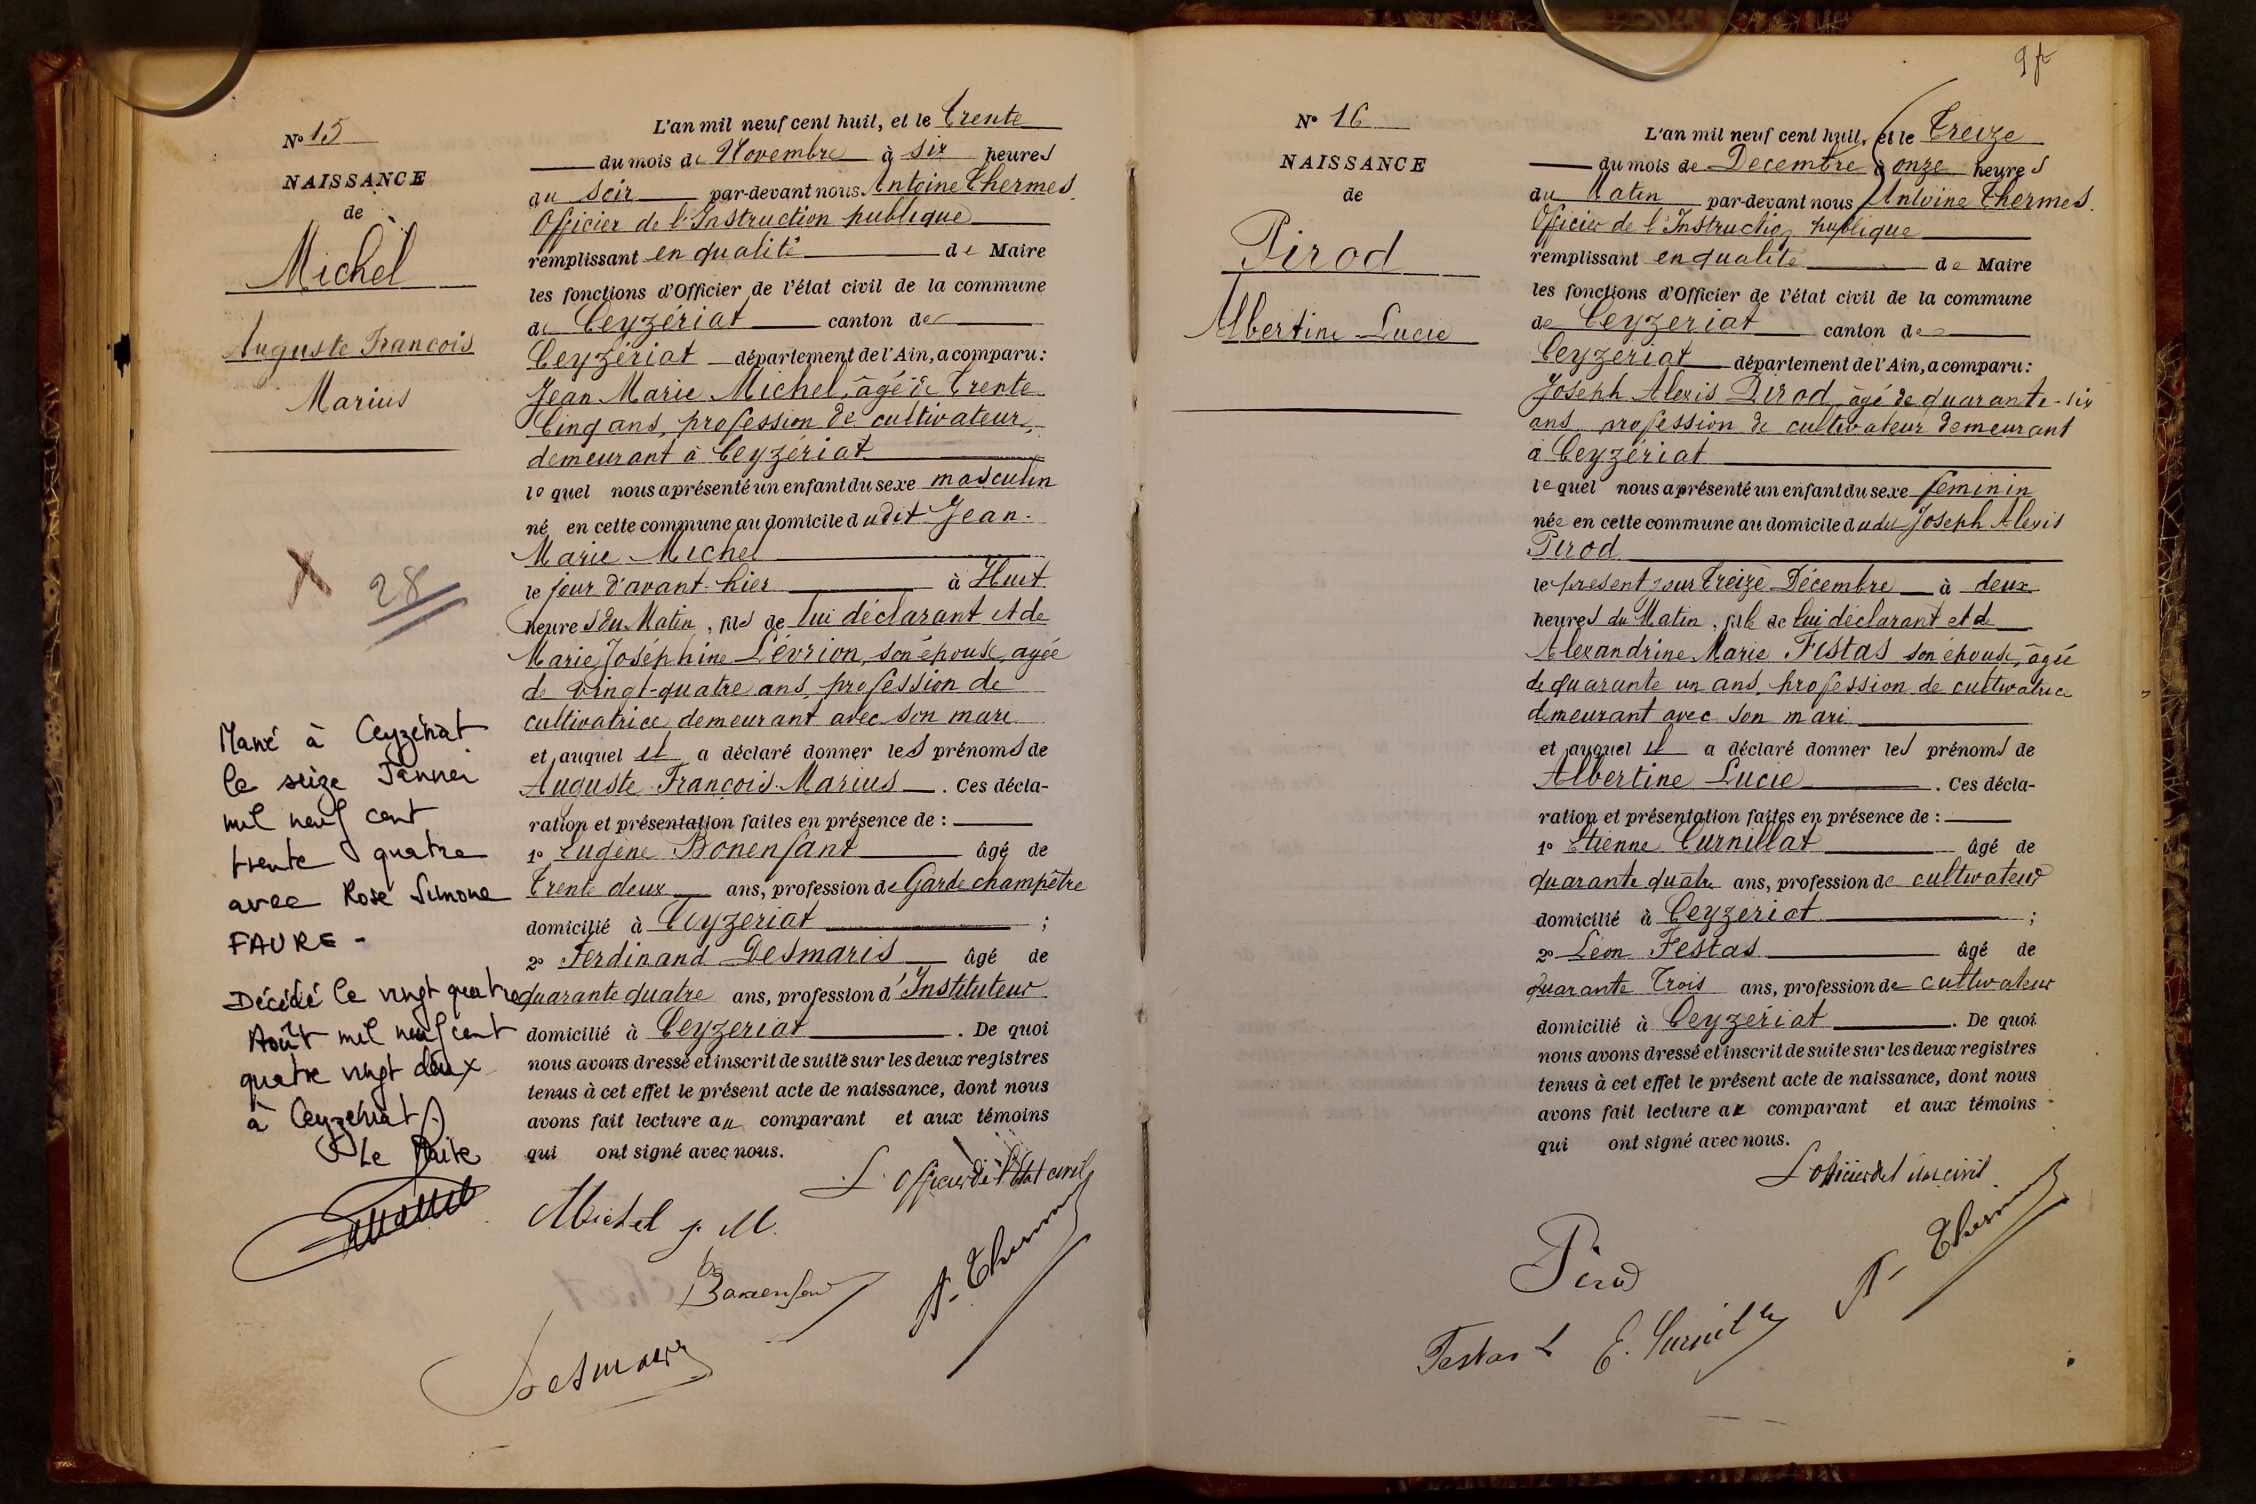 N° 15
NAISSANCE
de
Michel
Auguste François
Marius
28
Marié à Ceyzériat
le seize Janvier
mil neuf cent
trente quatre
avec Rose Simone
FAURE -
Décédé le vingt quatre
Août mil neuf cent
quatre vingt deux
à Ceyzériat
Le Maire
L'an mil neuf cent huit, et le Trente
du mois de Novembre à six heures
du soir par-devant nous Antoine Thermes
Officier de l'Instruction publique
remplissant en qualité de Maire
les fonctions d'Officier de l'état civil de la commune
de Ceyzériat canton de
Ceyzériat département de l'Ain, a comparu :
Jean Marie Michel, âgé de Trente
Cinq ans, profession de cultivateur,
demeurant à Ceyzériat
lequel nous a présenté un enfant du sexe masculin
né en cette commune au domicile dudit Jean-
Marie Michel
le jour d'avant-hier à Huit
heures du Matin, fils de lui déclarant et de
Marie Joséphine Lévrion, son épouse, agée
de vingt-quatre ans, profession de
cultivatrice demeurant avec son mari
et auquel il a déclaré donner les prénoms de
Auguste François Marius. Ces décla-
ration et présentation faites en présence de :
1° Eugène Bonenfant âgé de
Trente deux ans, profession de Garde champêtre
domicilié à Ceyzeriat ;
2° Ferdinand Desmaris âgé de
quarante quatre ans, profession d'Instituteur
domicilié à Ceyzeriat. De quoi
nous avons dressé et inscrit de suite sur les deux registres
tenus à cet effet le présent acte de naissance, dont nous
avons fait lecture au comparant et aux témoins
qui ont signé avec nous.
L'officier de l'Etat civil
Michel J. M.
Bonenfant
A. Thermes
Desmaris
N° 16
NAISSANCE
de
Pirod
Albertine Lucie
L'an mil neuf cent huit, et le Treize
du mois de Decembre à onze heures
du Matin par-devant nous Antoine Thermes.
Officier de l'Instruction publique
remplissant en qualité de Maire
les fonctions d'Officier de l'état civil de la commune
de Ceyzeriat canton de
Ceyzeriat département de l'Ain, a comparu :
Joseph Alexis Pirod, âgé de quarante-six
ans profession de cultivateur demeurant
à Ceyzériat
lequel nous a présenté un enfant du sexe féminin
née en cette commune au domicile dudit Joseph Alexis
Pirod
le présent jour Treize Décembre à deux
heures du Matin, fille de lui déclarant et de
Alexandrine Marie Festas son épouse, âgée
de quarante un ans, profession de cultivatrice
demeurant avec son mari
et auquel il a déclaré donner les prénoms de
Albertine Lucie. Ces décla-
ration et présentation faites en présence de :
1° Etienne Curnillat âgé de
quarante quatre ans, profession de cultivateur
domicilié à Ceyzériat ;
2° Léon Festas âgé de
quarante Trois ans, profession de cultivateur
domicilié à Ceyzériat. De quoi
nous avons dressé et inscrit de suite sur les deux registres
tenus à cet effet le présent acte de naissance, dont nous
avons fait lecture au comparant et aux témoins
qui ont signé avec nous.
L'officier de l'état civil
Pirod
A. Thermes
Festas L